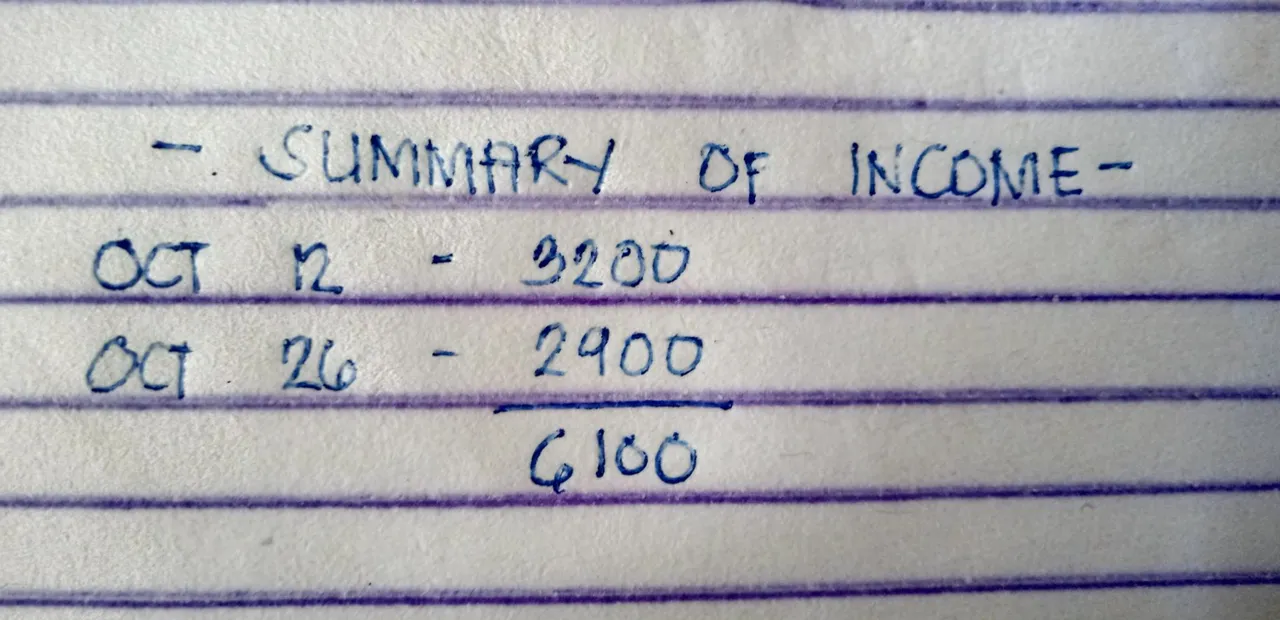 - SUMMARY OF INCOME -
OCT 12 - 3200
OCT 26 - 2900
6100